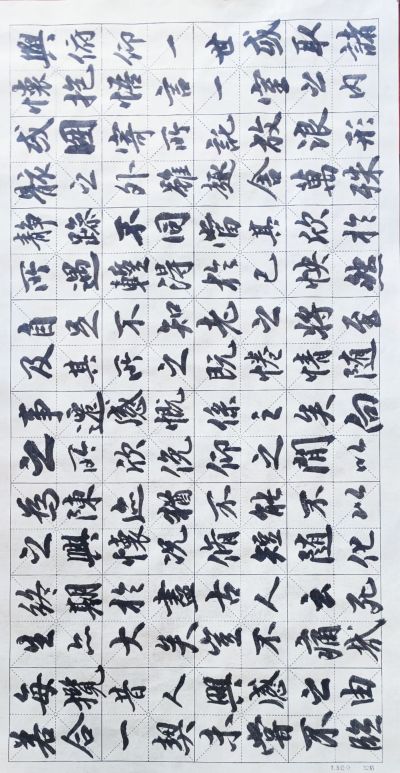 與俯仰一世或取諸
懷抱悟言一室之内
或因寄所託放浪形
骸之外雖趣舍萬殊
靜躁不同當其欣於
所遇暫得於己快然
自足不知老之將至
及其所之既惓情隨
事遷感慨係之矣向
之所欣俛仰之閒以
為陳迹猶不能不以
之興懷況脩短隨化
終期於盡古人云死
生亦大矣豈不痛哉
每攬昔人興感之由
若合一契未嘗不臨